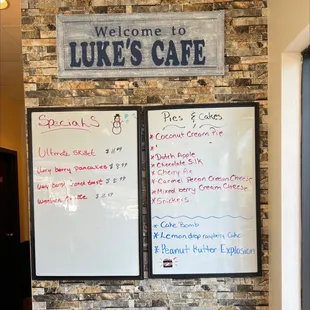 Welcome to
LUKE'S CAFE
Specials
Ultimate skillet
Very berry pancakes
Very berry
Pies & Cakes
Coconut Cream Pie
Dutch Apple
Chocolate Silk
Cherry Pie
Carmel Pecan Cream Cheese
Mixed berry Cream Cheese
Snickers
Cake Bomb
Lemon drop raspberry Cake
Peanut Butter Explosion